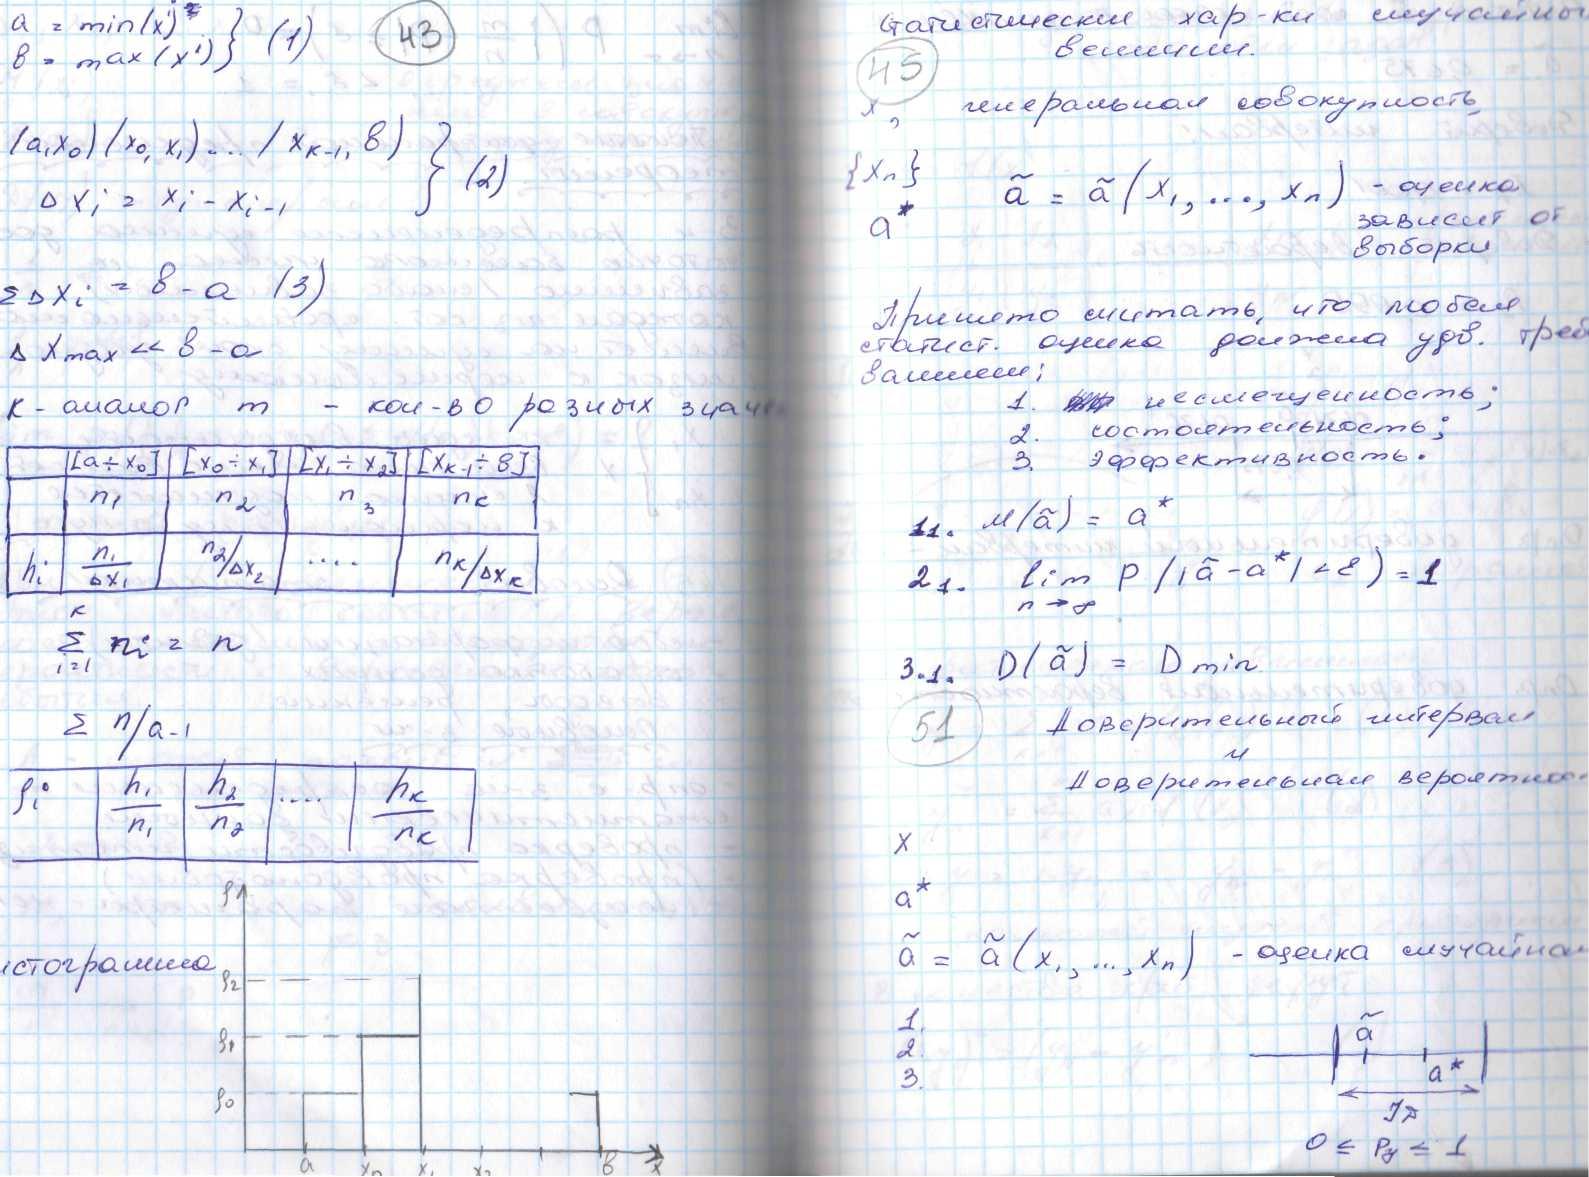 a = min(x')
b = max(x') } (1)
43
(a, x₀) (x₀, x₁) ... (xₖ₋₁, b)
Δxᵢ = xᵢ - xᵢ₋₁ } (2)
ΣΔxᵢ = b - a (3)
Δxmax << b - a
к - аналог m - кол-во разных значе
[a ÷ x₀] [x₀ ÷ x₁] [x₁ ÷ x₂] [xₖ₋₁ ÷ b]
n₁ n₂ n₃ nₖ
hᵢ n₁/Δx₁ n₂/Δx₂ .... nₖ/Δxₖ
k
Σ nᵢ = n
i=1
Σ n/a-1
ρᵢ h₁/n₁ h₂/n₂ .... hₖ/nₖ
ρ
истограмма
ρ₂
ρ₁
ρ₀
a x₀ x₁ x₂ b x
Статистические хар-ки случайны
величин.
45
x, генеральная совокупность
{xₙ}
ã = ã(x₁, ..., xₙ) - оценка
зависит от
выборки
a*
Принято считать, что любая
статист. оценка должна удв. треб
ваниям:
1. несмещенность;
2. состоятельность;
3. эффективность.
1.1. M(ã) = a*
2.1. lim P(|ã - a*| < ε) = 1
n→∞
3.1. D(ã) = Dmin
51
Доверительный интервал
и
Доверительная вероятнос
x
a*
ã = ã(x₁, ..., xₙ) - оценка случайная
1.
2.
3.
ã
a*
0 ≤ Py ≤ 1